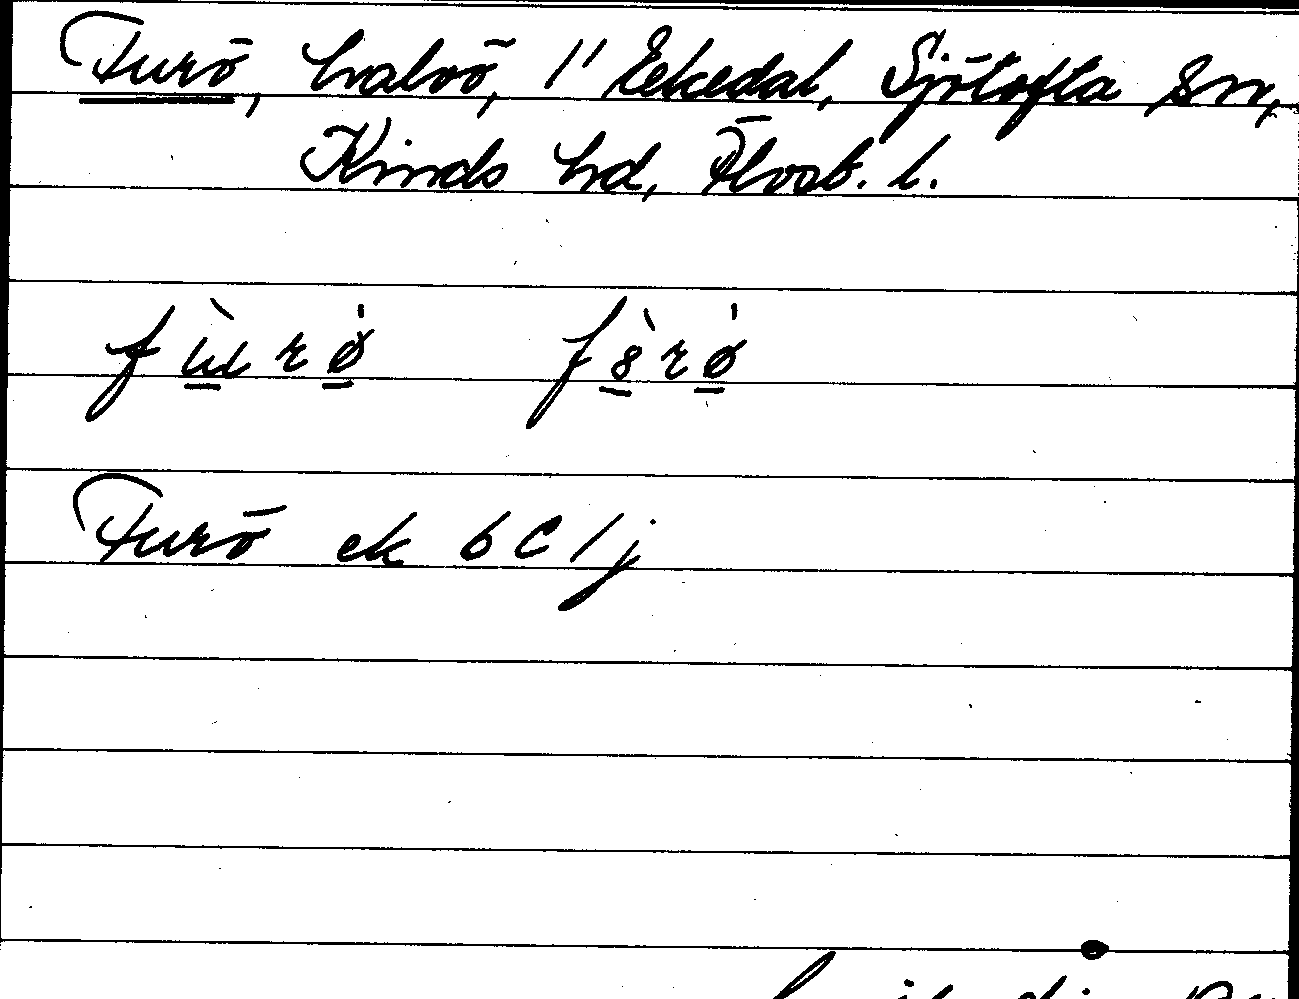 Furö, halvö, 1" Ekedal, Sjötofta sn,
Kinds hd, Älvsb. l.
fùrø̍ f8̀rø̍
Furö ek 6 C 1 j